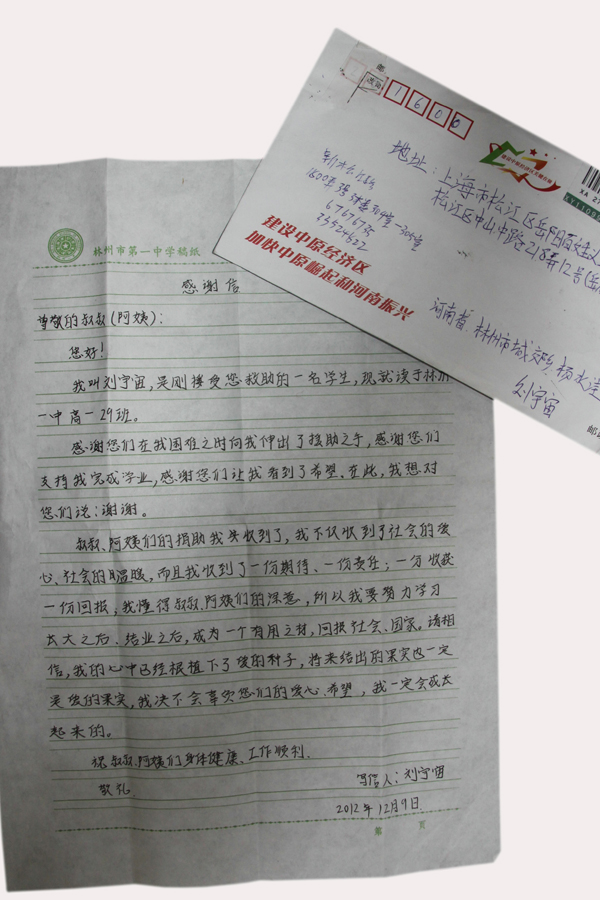 林州市第一中学稿纸
感谢信
尊敬的叔叔(阿姨):
您好!
我叫刘宇宙,是刚接受您救助的一名学生,现就读于林州
一中高一29班。
感谢您们在我困难之时向我伸出了援助之手,感谢您们
支持我完成学业,感谢您们让我看到了希望。在此,我想对
您们说:谢谢。
叔叔、阿姨们的捐助我先收到了,我不仅收到了社会的爱
心、社会的温暖,而且我收到了一份期待、一份责任;一分收获
一份回报,我懂得叔叔、阿姨们的深意,所以我要努力学习
长大之后、结业之后,成为一个有用之材,回报社会、国家。请相
信,我的心中已经根植下了爱的种子,将来结出的果实也一定
是爱的果实,我决不会辜负您们的爱心、希望,我一定会成长
起来的。
祝叔叔、阿姨们身体健康、工作顺利.
敬礼
写信人:刘宇宙
2012年12月9日.
第 页
邮
1600
地址:上海市松江区岳阳
松江区中山中路218弄12号
1600弄
67676735
33524622
建设中原经济区
加快中原崛起和河南振兴
河南省、林州市城
刘宇宙
邮
XA 27